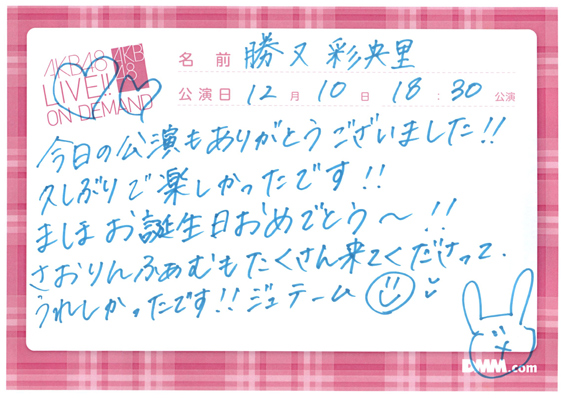 AKB48
LIVE!!
ON DEMAND
AKB
48
名前 勝又 彩央里
公演日 12月 10日 18:30 公演
今日の公演もありがとうございました!!
久しぶりで楽しかったです!!
ましほお誕生日おめでとう〜!!
さおりんふぁむもたくさん来てくださって、
うれしかったです!!ジュテーム
DMM.com